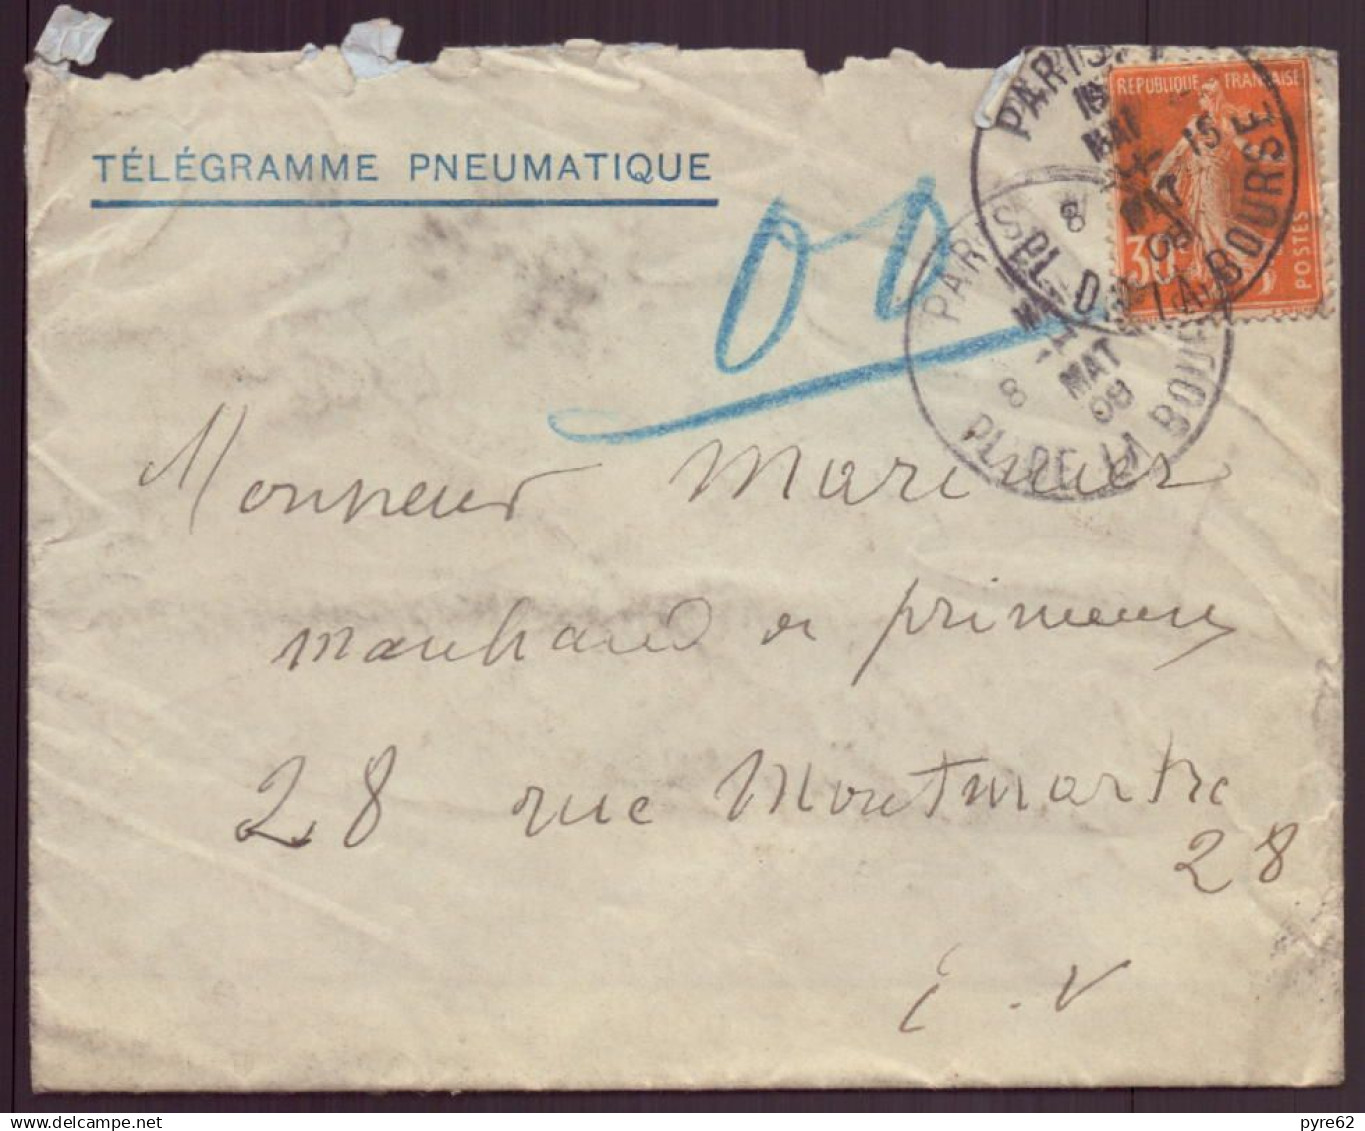 TÉLÉGRAMME PNEUMATIQUE
REPUBLIQUE FRANÇAISE
30
POSTES
PARIS
PL. DE LA BOURSE
MAI
15
8
08
PARIS
8
MAT
08
PL. DE LA BOURSE
Monsieur Marinier
marchand de primeurs
28 rue Montmartre
28
E.V
pyre62